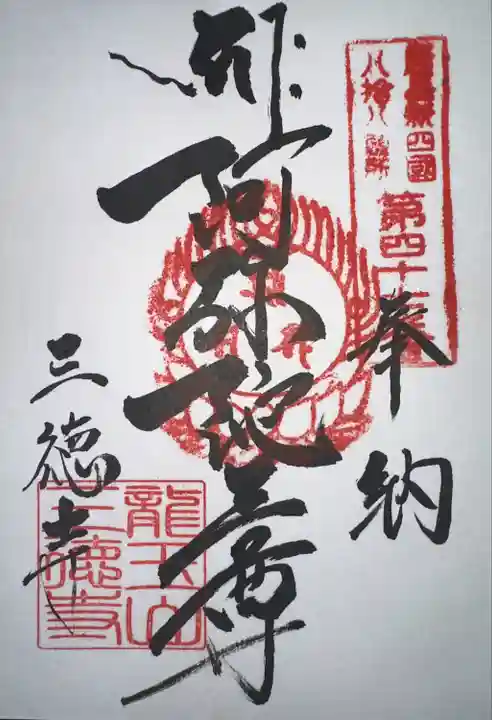 四國
八拾八
第四十
奉納
阿弥陀三尊
三徳寺
龍王山
三徳寺